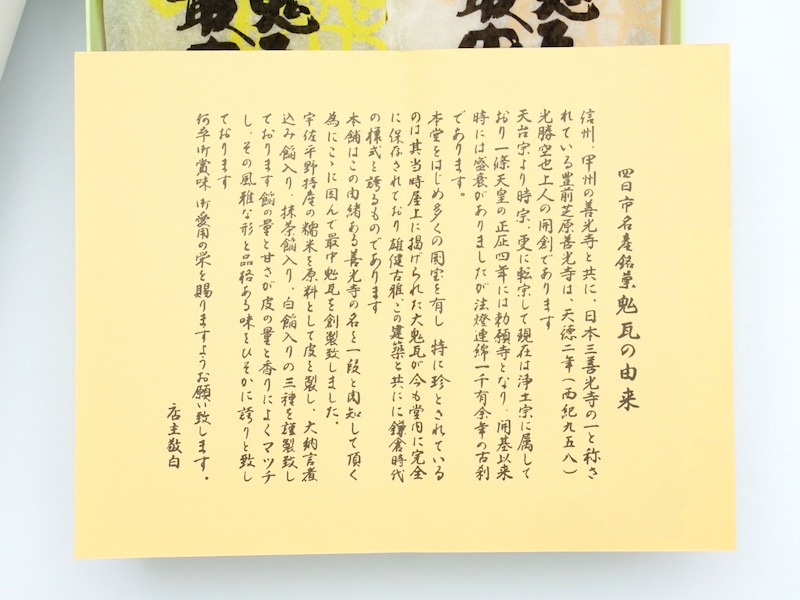 四日市名産銘菓鬼瓦の由来
信州、甲州の善光寺と共に、日本三善光寺の一と称さ
れている豊前芝原善光寺は、天徳二年(西紀九五八)
光勝空也上人の開創であります
天台宗より時宗、更に転宗して現在は浄土宗に属して
おり一條天皇の正暦四年には勅願寺となり、開基以来
時には盛衰がありましたが法燈連綿一千有余年の古刹
であります。
本堂をはじめ多くの国宝を有し 特に珍とされている
のは其当時屋上に掲げられた大鬼瓦が今も堂内に完全
に保存されており雄健古雅、この建築と共にに鎌倉時代
の様式を誇るものであります
本舗はこの由緒ある善光寺の名を一段と周知して頂く
為にこゝに因んで最中鬼瓦を創製致しました。
宇佐平野特産の糯米を原料として皮を製し、大納言煮
込み餡入り、抹茶餡入り、白餡入りの三種を謹製致し
ております餡の量と甘さが皮の量と香りによくマッチ
し、その風雅な形と品格ある味をひそかに誇りと致し
ております
何卒御賞味 御愛用の栄を賜りますようお願い致します。
店主敬白